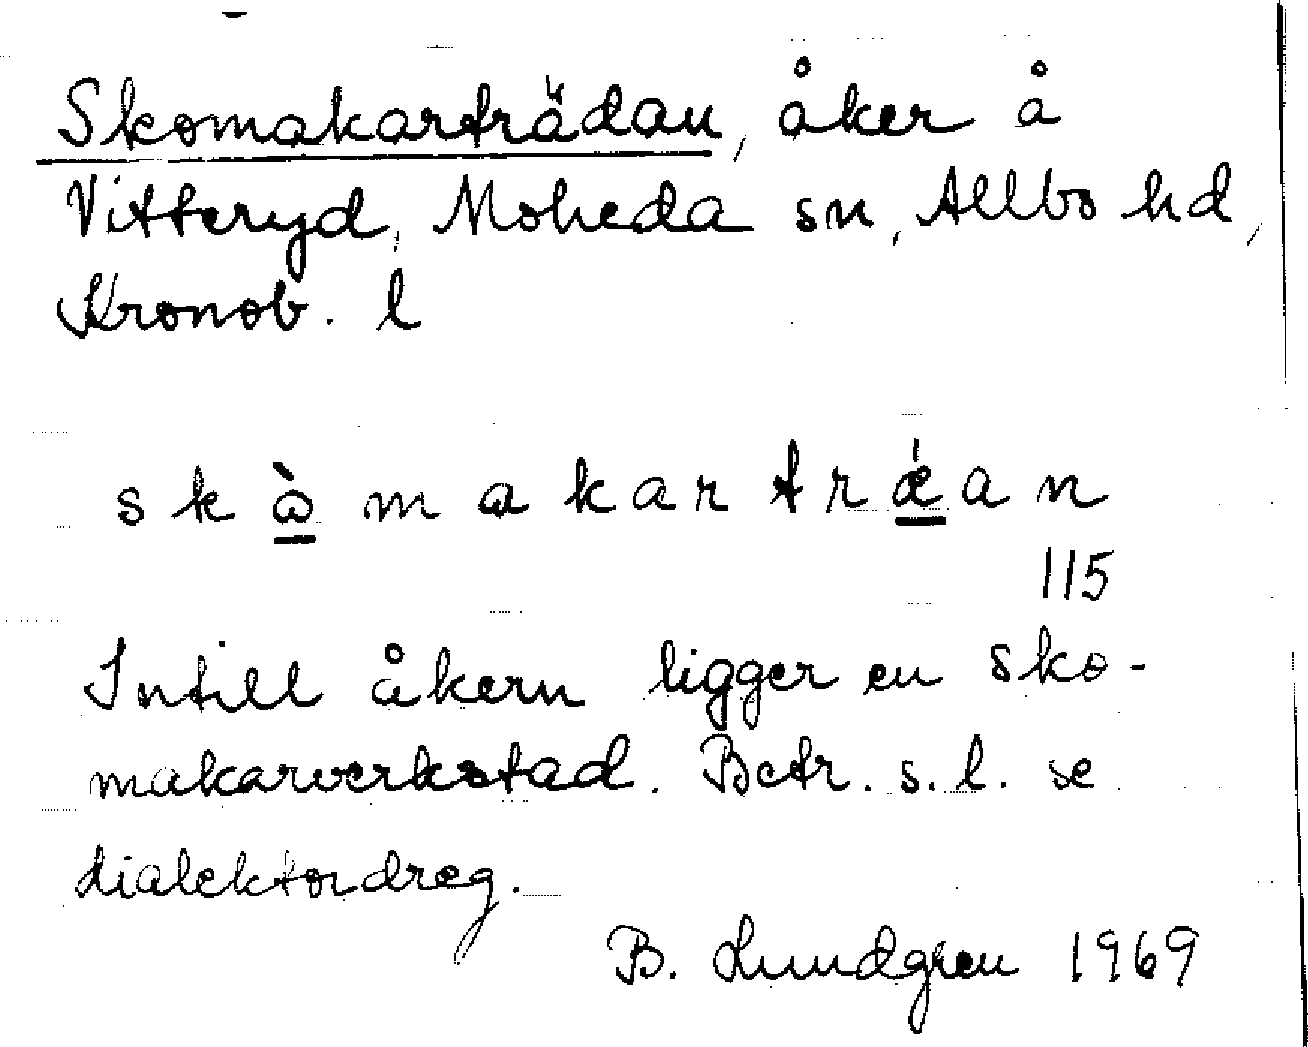 Skomakarträdan, åker å
Vitteryd, Moheda sn, Allbo hd,
Kronob. l
sk&#x0; makartrǽan
115
Intill åkern ligger en sko-
makarverkstad. Betr. s. l. se
dialektordreg.
B. Lundgren 1969